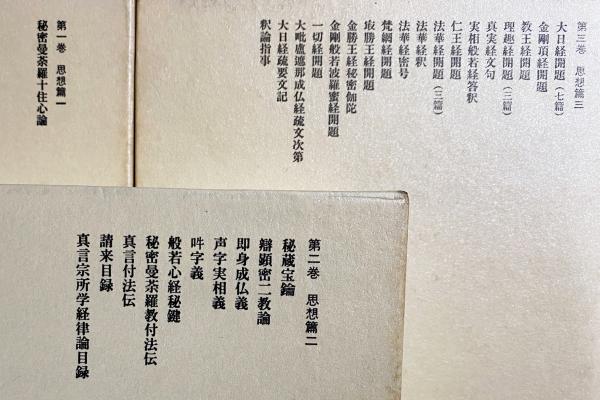 第三巻　思想篇三
大日経開題（七篇）
金剛頂経開題
教王経開題
理趣経開題（三篇）
真実経文句
実相般若経答釈
仁王経開題
法華経開題（三篇）
法華経釈
法華経密号
梵網経開題
最勝王経開題
金勝王経秘密伽陀
金剛般若波羅蜜経開題
一切経開題
大毗盧遮那成仏経疏文次第
大日経疏要文記
釈論指事
第一巻　思想篇一
秘密曼荼羅十住心論
第二巻　思想篇二
秘蔵宝鑰
辯顕密二教論
即身成仏義
声字実相義
吽字義
般若心経秘鍵
秘密曼荼羅教付法伝
真言付法伝
請来目録
真言宗所学経律論目録